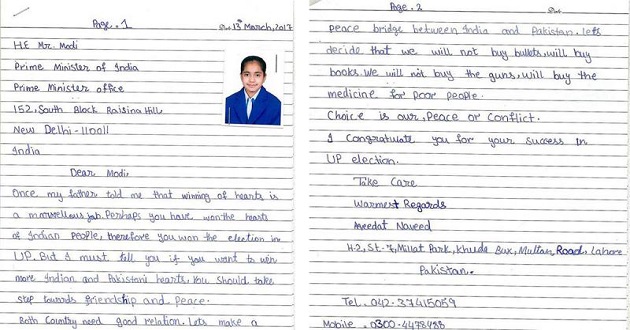 Page. 1
13th March, 2017
HE Mr. Modi
Prime Minister of India
Prime Minister office
152, South Block Raisina Hill
New Delhi -110011
India
Dear Modi,
Once my father told me that winning of hearts is
a marvellous job. Perhaps you have won the hearts
of Indian People, therefore you won the election in
UP. But I must tell you if you want to win
more Indian and Pakistani hearts, You should take
step towards friendship and peace.
Both Country need good relation. Lets make a
Page. 2
peace bridge between India and Pakistan. lets
decide that we will not buy bullets, will buy
books. We will not buy the guns, will buy the
medicine for poor people.
Choice is our, Peace or Conflict.
I Congratulate you for your success in
UP election.
Take Care
Warmest Regards
Aqeedat Naveed
H-2, St-7, Millat Park, Khuda Bux, Multan Road, Lahore
Pakistan.
Tel. 042-37415059
Mobile. 0300-4478488